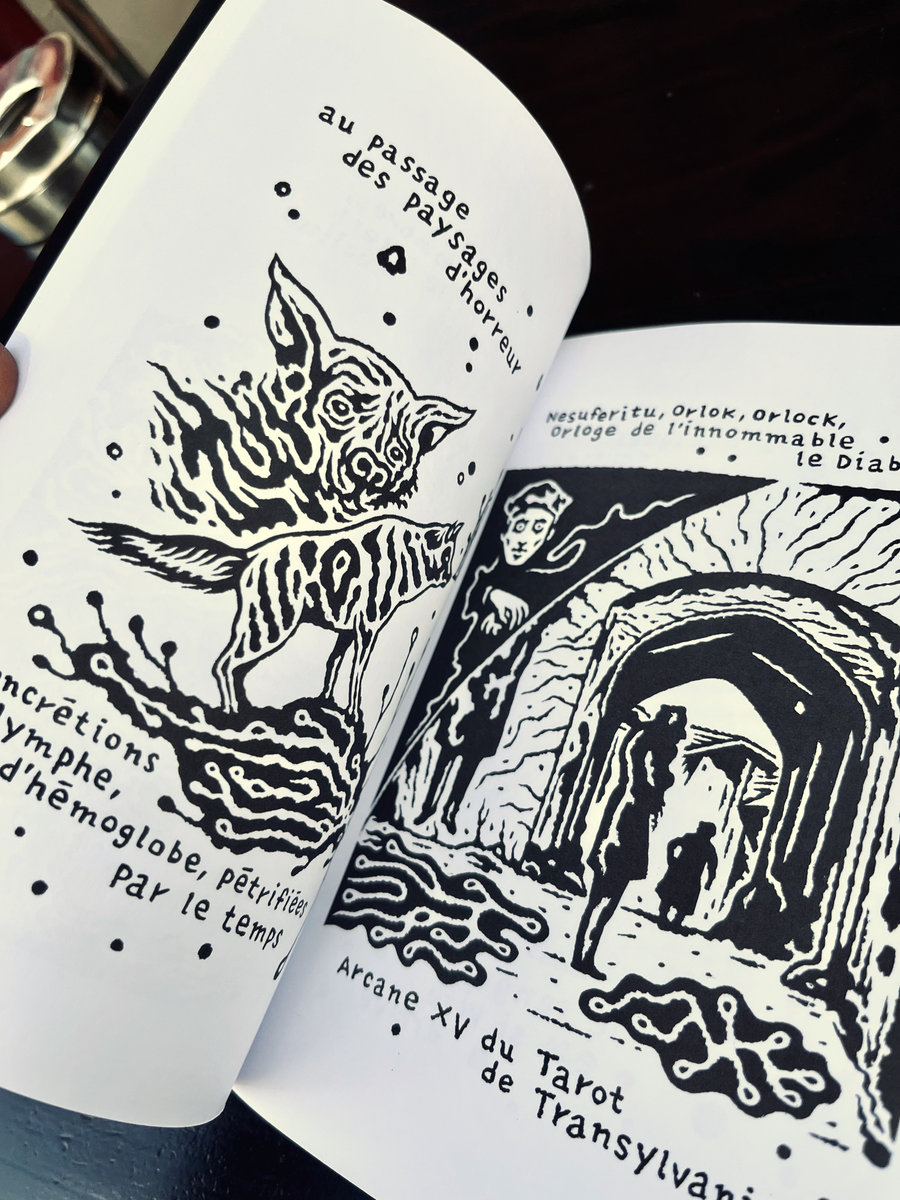 au passage
des paysages
d'horreur
ncrétions
lymphe,
d'hémoglobe, pétrifiées
par le temps
Nesuferitu, Orlok, Orlock,
Orloge de l'innommable
le Diab
Arcane XV du Tarot
de Transylvani